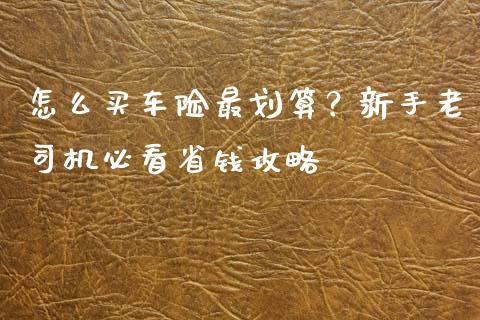 怎么买车险最划算？新手老
司机必看省钱攻略